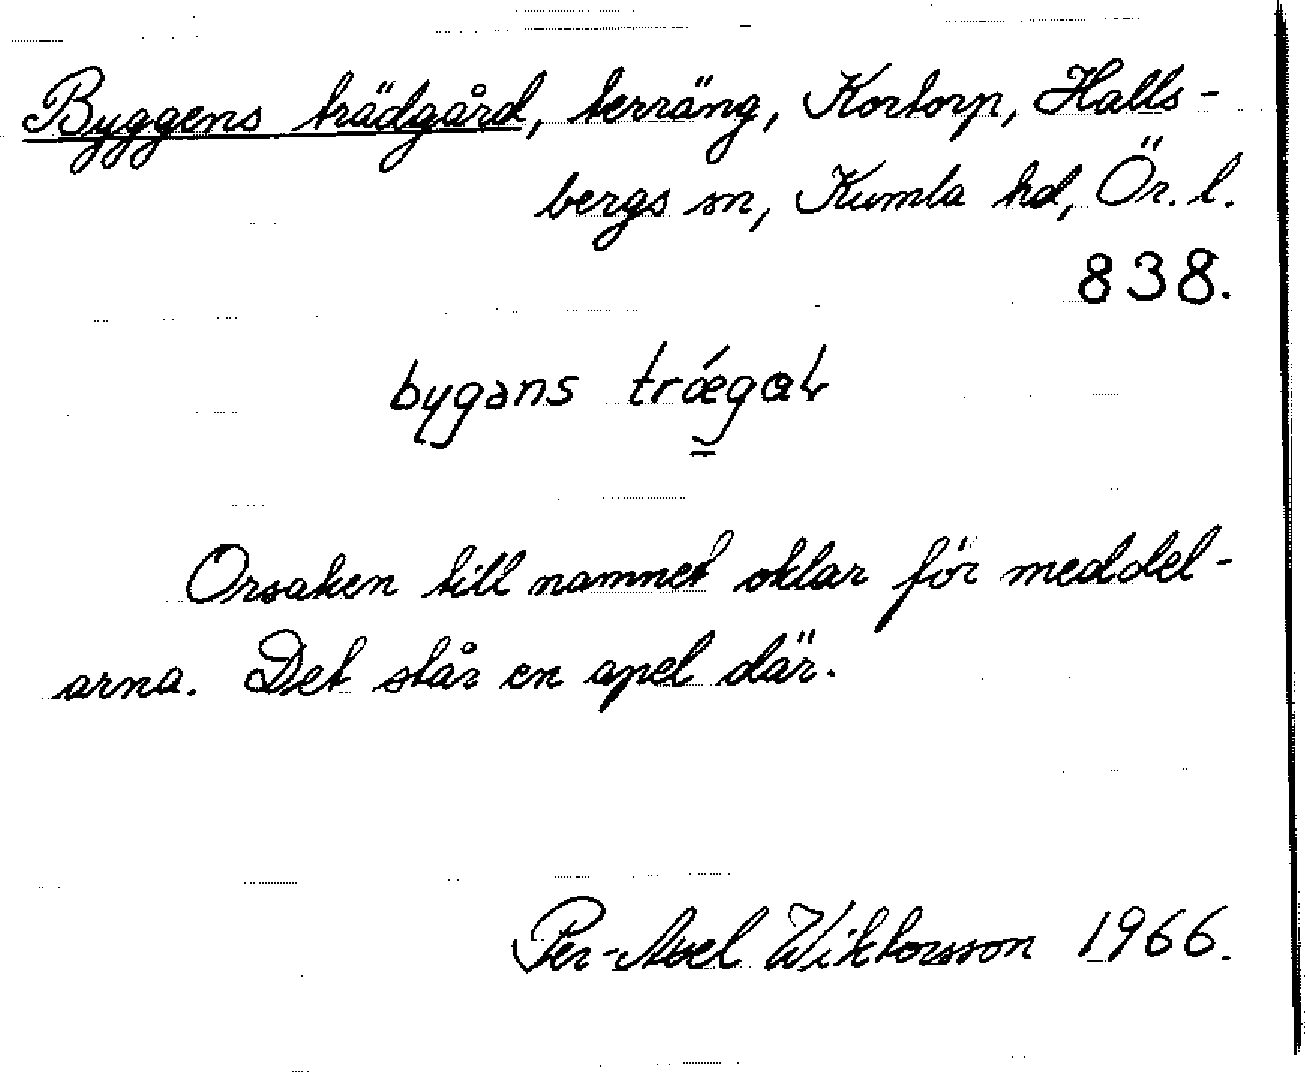 Byggens trädgård, terräng, Kortorp, Halls-
bergs sn, Kumla hd, Ör. l.
838.
bygans trǽgaɬ
Orsaken till namnet oklar för meddel-
arna. Det står en apel där.
Per-Axel Wiktorsson 1966.